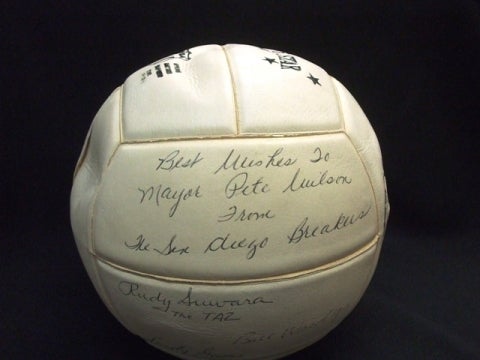 STAR
Best Wishes To
Mayor Pete Wilson
From
The San Diego Breakers
Rudy Suwara
"The TAZ"
Bill